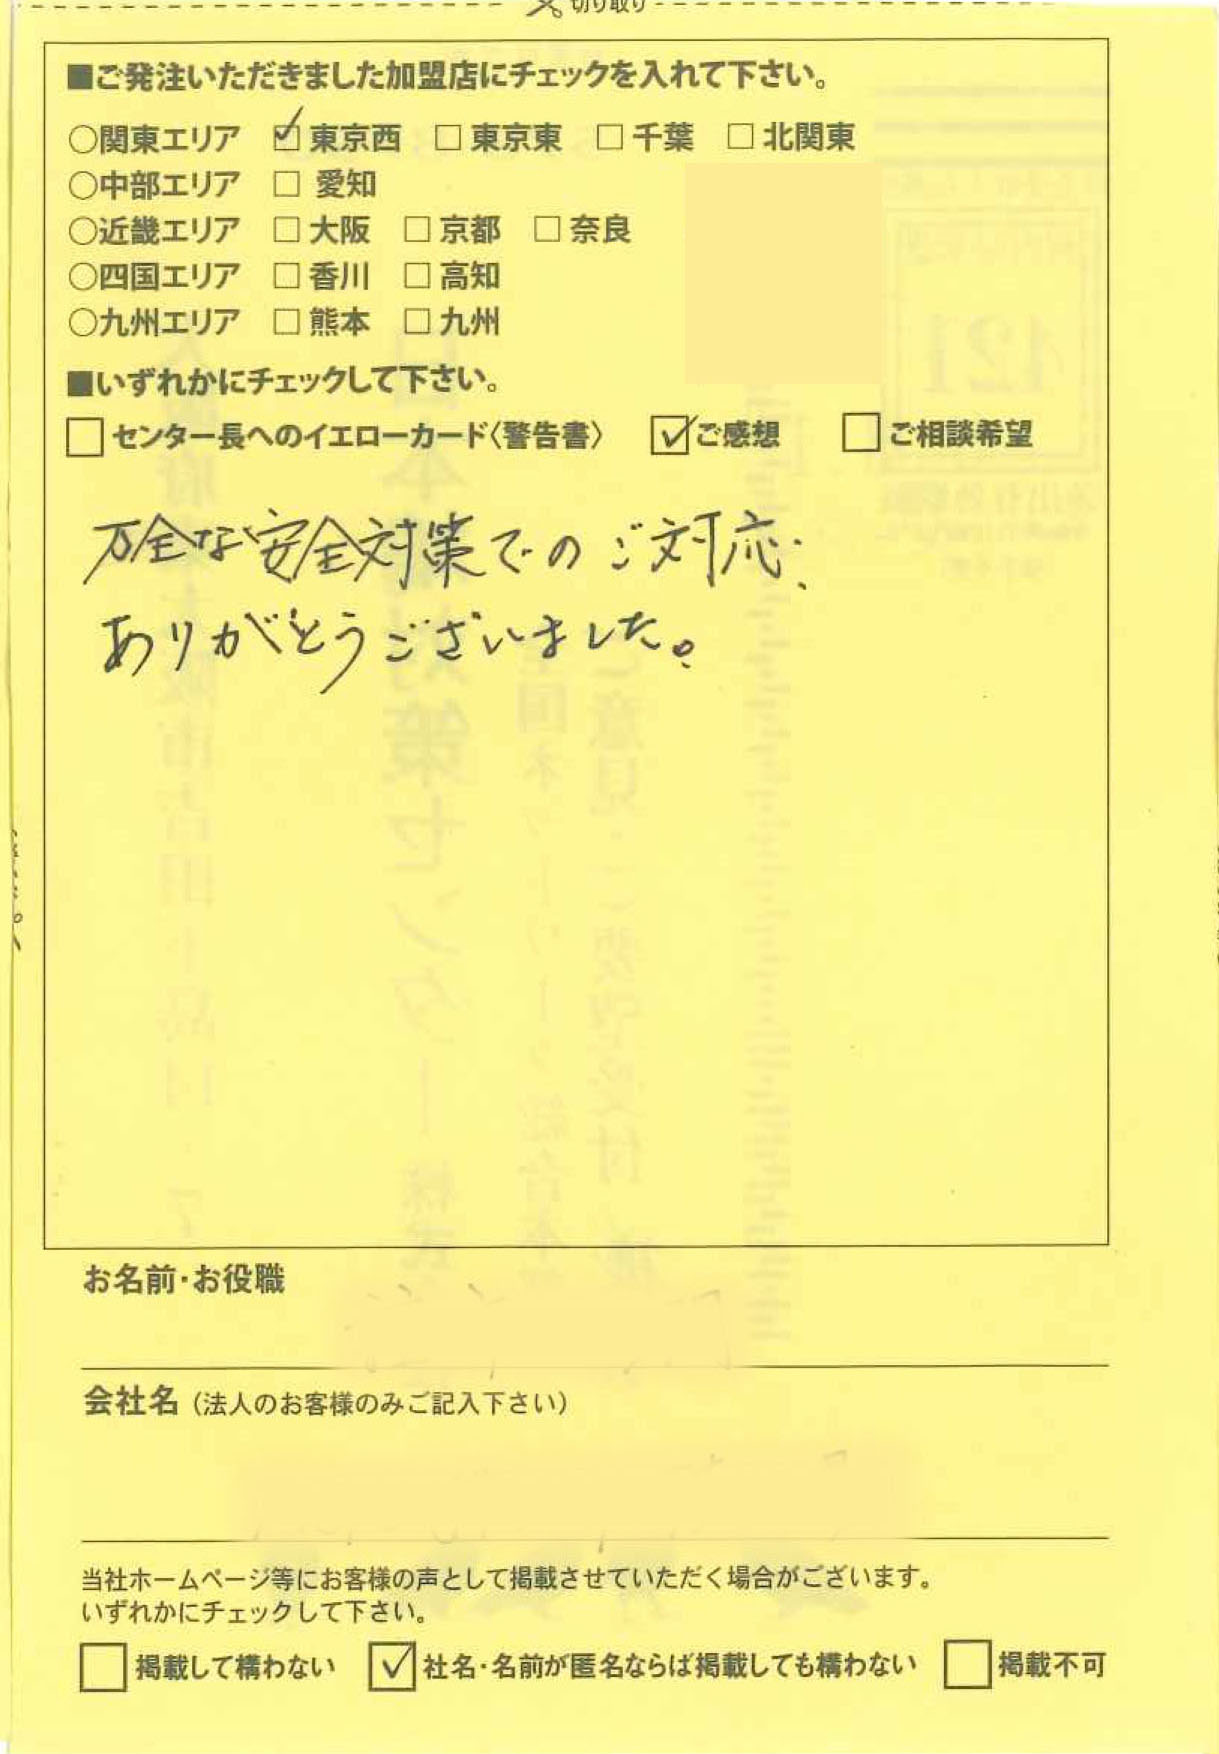 切り取り
■ご発注いただきました加盟店にチェックを入れて下さい。
○関東エリア ☑ 東京西 □ 東京東 □ 千葉 □ 北関東
○中部エリア □ 愛知
○近畿エリア □ 大阪 □ 京都 □ 奈良
○四国エリア □ 香川 □ 高知
○九州エリア □ 熊本 □ 九州
■いずれかにチェックして下さい。
□ センター長へのイエローカード〈警告書〉 ☑ ご感想 □ ご相談希望
万全な安全対策でのご対応、
ありがとうございました。
お名前・お役職
会社名（法人のお客様のみご記入下さい）
当社ホームページ等にお客様の声として掲載させていただく場合がございます。
いずれかにチェックして下さい。
□ 掲載して構わない ☑ 社名・名前が匿名ならば掲載しても構わない □ 掲載不可